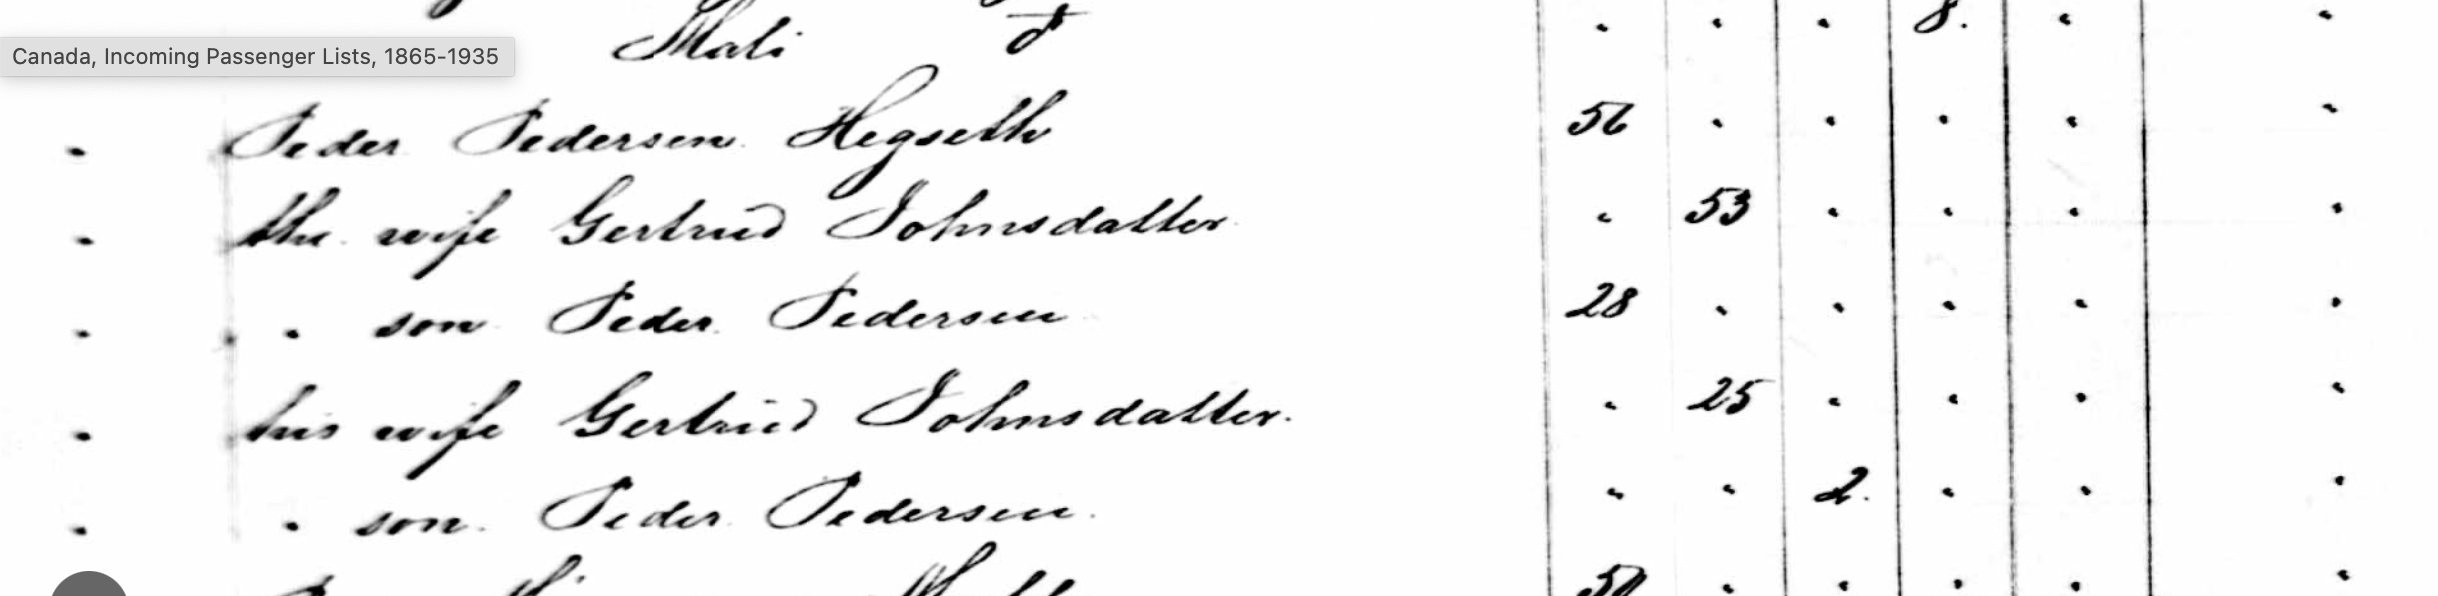 Mali d 8.
Canada, Incoming Passenger Lists, 1865-1935
Peder Pedersen Hegseth 56
the wife Gertrud Johnsdatter 53
" son Peder Pedersen 28
his wife Gertrud Johnsdatter. 25
" son Peder Pedersen. 2.